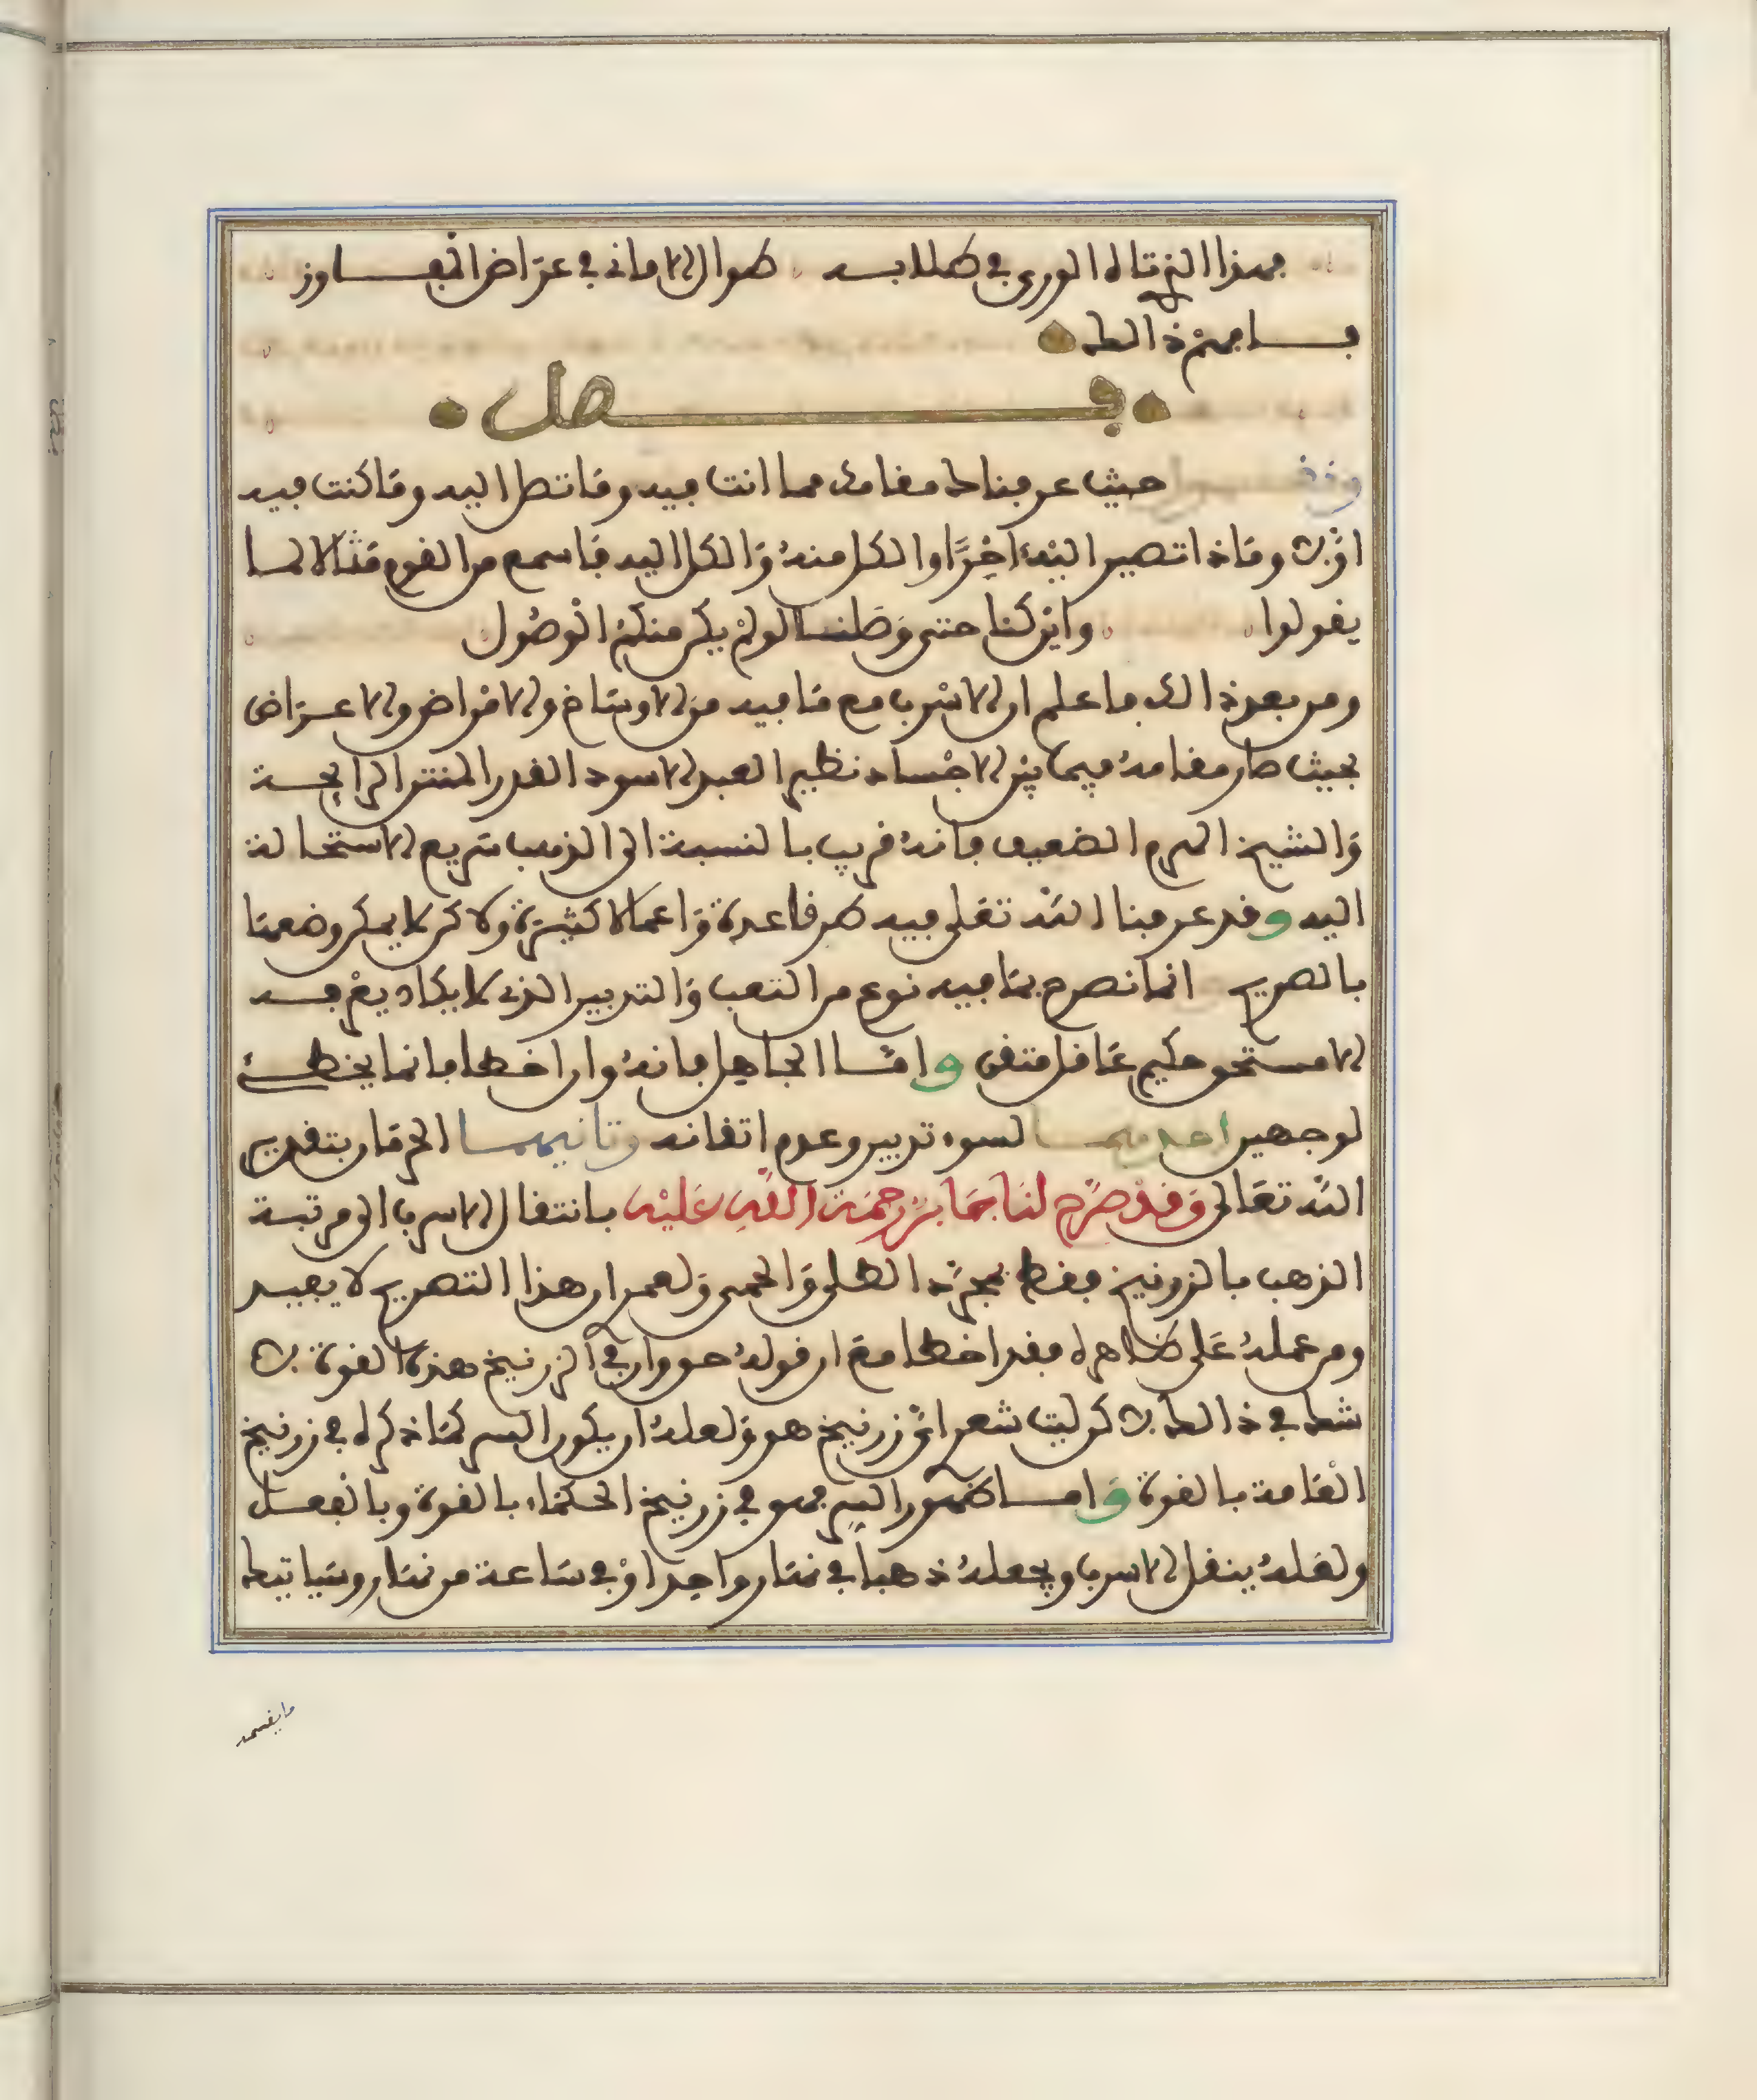 فهذا الذي تاه الورى في طلابه طوال الاماني في عراض المفاوز
فافهم ذالك
فصل
حيث عرفناك مقامك مما انت فيه وما تنظر اليه وما كنت فيه
اولا وماذا تصير اليه اخرا والكل منه والكل اليه فاسمع من القوم مثالا لما
يقولوا واين كنا حتى وصلنا لو لم يكن منكم الوصول
ومن بعد ذالك فاعلم ان الاسرب مع ما فيه من الاوساخ والامراض والاعراض
بحيث صار مقامه فيما بين الاجساد نظير العبد الاسود القدر المنتن الرايحة
والشيخ الهرم الضعيف فانه قريب بالنسبة الى الذهب سريع الاستحالة
اليه وقد عرفنا الله تعلى فيه طرقا عدة واعمالا كثيرة ولاكن لا يمكن وضعها
بالصريح انما نصرح بما فيه نوع من التعب والتدبير الذي لا يكاد يعرفه
الا مستحق حكيم عاقل متقى واما الجاهل فانه وان اخطا فانما يخطئ
لوجهين احدهما لسوء تدبير وعدم اتقانه وثانيهما الحرمان بتقدير
الله تعالى وقد صرح لنا جابر رحمة الله عليه بانتقال الاسرب الى مرتبة
الذهب بالزرنيخ فقط بمجرد الطلى والحمى ولعمر ان هذا التصريح لا يفيد
ومن عمله على ظاهره فقد اخطا مع ان قوله حق وان في الزرنيخ هذه القوة لا
شك في ذالك لاكن ليت شعر اي زرنيخ هو ولعله ان يكون السر كما ذكره في زرنيخ
العامة بالقوة واما ظهور السر فهو في زرنيخ الحكماء بالقوة وبالفعل
ولعله ينقل الاسرب ويجعله ذهبا في نهار واحد او في ساعة من نهار وسياتيك